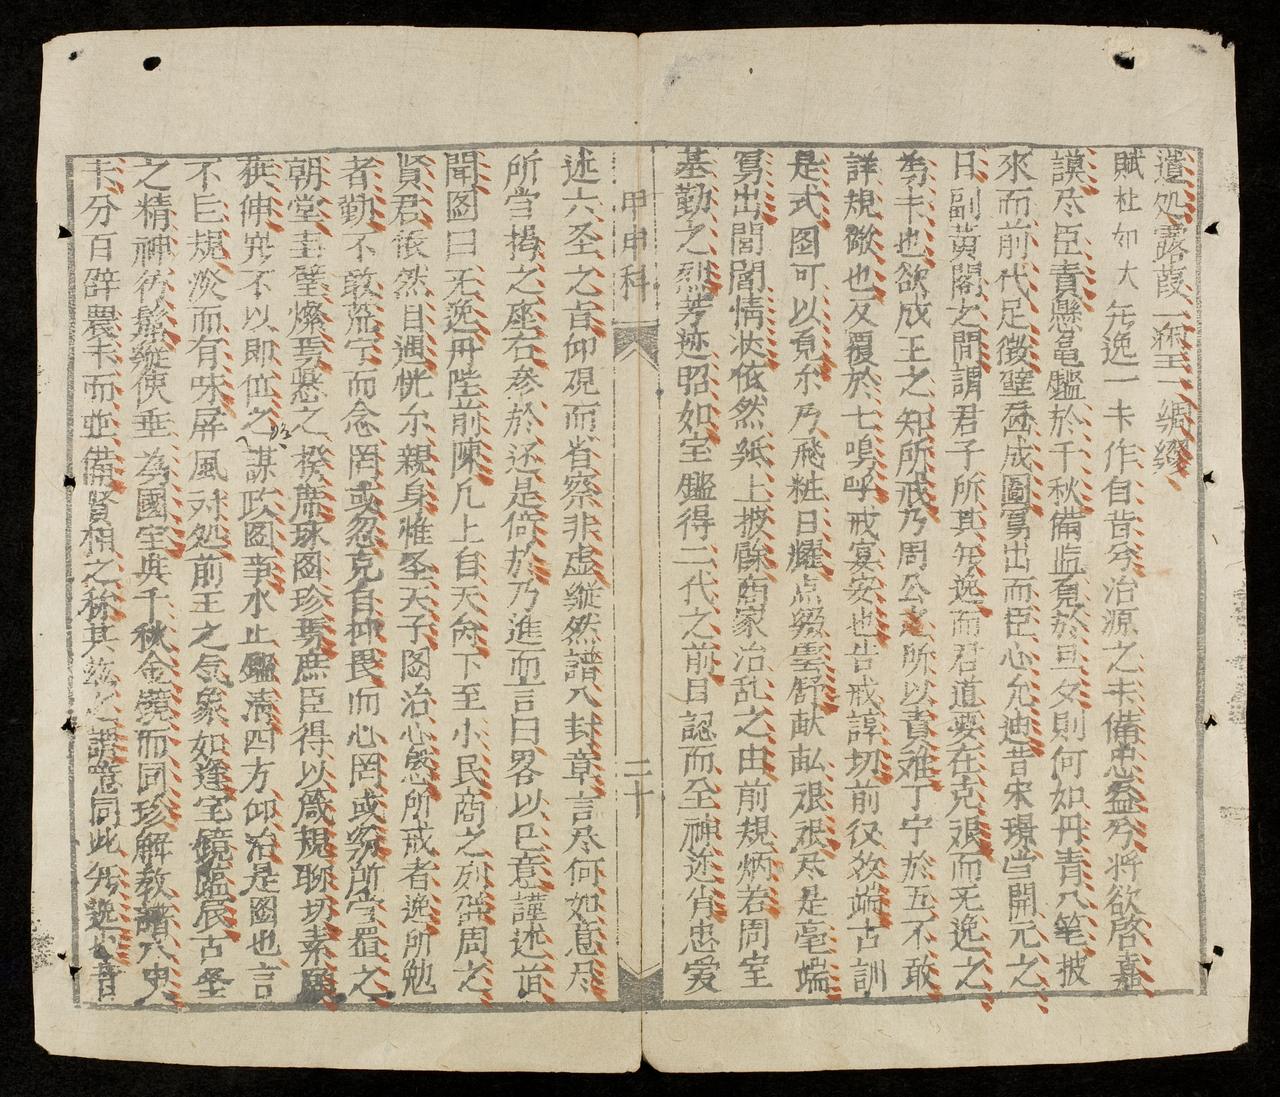 遺処露葭一稱王一綢繆
賦杜如大 无逸一卡作自昔兮治源之卡備忠益兮将欲啓嘉
謨尽臣責懸亀鑑於千秋備监覓於日夕則何如丹青八笔披
來而前代足徴壁啚成圖寫出而臣心允迪昔宋璟当開元之
日副黄閣之間謂君子所其无逸而君道要在克艰而无逸之
為卡也欲成王之知所戒乃周公之所以責难丁宁於五不敢
詳規儆也反覆於七嗚呼戒宴安也告戒諄切前後效端古訓
是式图可以覓尔乃飛粧日耀点綴雲舒猷猷艰艰尽是毫端
寫出閭閻情状依然紙上披酥商家治乱之由前規炳若周室
基勤之烈芳迹昭如宝鑑得二代之前目認而至神迩肖忠爱
甲申科 二十
述六圣之旨仰覌而省察非虚縦然譜入封章言尽何如意尽
所当揭之座右参於还是倚於乃進而言曰畧以已意謹述前
聞图曰无逸丹陛前陳凡上自天命下至小民商之列辟周之
賢君依然目遇恍尔親身惟圣天子图治心慇所戒者逸所勉
者勤不敢荒宁而念罔或忽克自抑畏而心罔或寧所当置之
朝堂圭璧燦焉懸之揆席球图珍焉庶臣得以箴規聊切素願
狭伸宪不以即位之謀政图亊水止鑑清四方仰治是图也言
不巨規淡而有味屏風对処前王之気象如逢宝鏡臨辰古圣
之精神彷髴縦使垂為國宝與千秋金鏡而同珍解教譜入史
卡分百辟農卡而並備賢相之称其茲之謂意同此无逸也昔